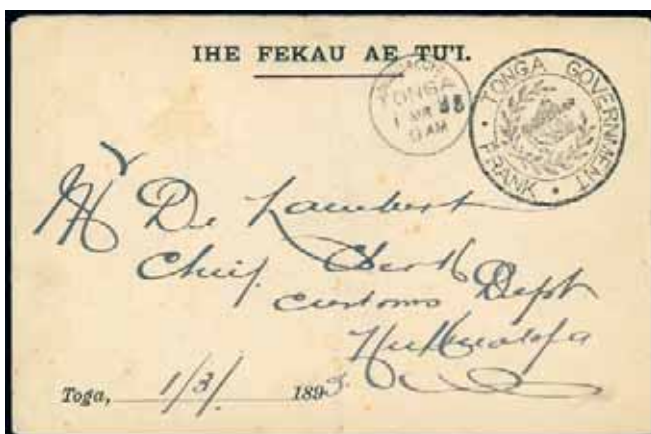 IHE FEKAU AE TU'I.
TONGA
1 MR 95
11 AM
TONGA GOVERNMENT
FRANK
De Lambert
Chief Clerk
Customs Dept
Nukualofa
Toga, 1/3/ 1895